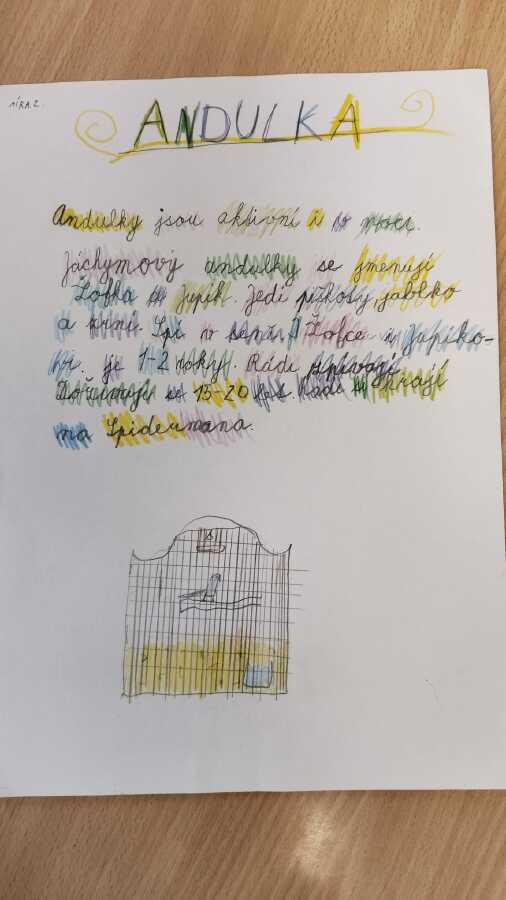 MÍRA 2.
ANDULKA
Andulky jsou aktivní i v noci.
Jáchymovy andulky se jmenují
Žofka a Jupík. Jedí piškoty, jablko
a zrní. Spí v seně. Žofce i Jupíko-
vi je 1-2 roky. Rádi zpívají.
Dožívají se 15-20 let. Rádi si hrají
na Spidermana.